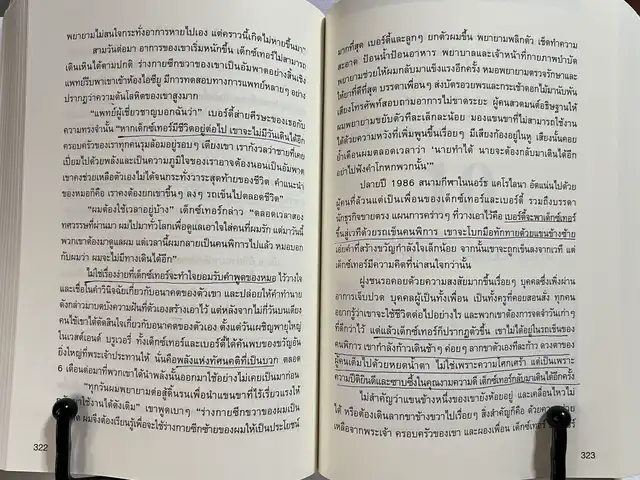 พยายามไม่สนใจกระทั่งอาการหายไปเอง แต่คราวนี้เกิดไม่หายขึ้นมา"
สามวันต่อมา อาการของเขาเริ่มหนักขึ้น เด็กซ์เทอร์ไม่สามารถ
เดินเหินได้ตามปกติ ร่างกายซีกขวาของเขาเป็นอัมพาตอย่างสิ้นเชิง
แพทย์รีบพาเขาเข้าห้องไอซียู มีการทดสอบทางการแพทย์หลายๆ อย่าง
ปรากฏว่าความดันโลหิตของเขาสูงมาก
"แพทย์ผู้เชี่ยวชาญบอกฉันว่า" เบอร์ดี้ส่ายศีรษะของเธอกับ
ความทรงจำนั้น "หากเด็กซ์เทอร์มีชีวิตอยู่ต่อไป เขาจะไม่มีวันเดินได้อีก
ครอบครัวของเราทุกคนรุมล้อมอยู่รอบๆ เตียงเขา เรากังวลว่าชายที่เคย
เปี่ยมไปด้วยพลังและเป็นความภูมิใจของเราอาจต้องนอนเป็นอัมพาต
เขาคงช่วยเหลือตัวเองไม่ได้จนกระทั่งวาระสุดท้ายของชีวิต คำแนะนำ
ของหมอก็คือ เราคงต้องยกเขาขึ้นๆ ลงๆ รถเข็นไปตลอดชีวิต"
"ผมต้องใช้เวลาอยู่บ้าง" เด็กซ์เทอร์กล่าว "ตลอดเวลาสอง
ทศวรรษที่ผ่านมา ผมไปมาทั่วโลกเพื่อดูแลเอาใจใส่คนที่ผมรัก แต่มาวันนี้
พวกเขาต้องมาดูแลผม แต่เวลานี้ผมกลายเป็นคนพิการไปแล้ว หมอบอก
กับผมว่า ผมจะไม่มีทางเดินได้อีก"
ไม่ใช่เรื่องง่ายที่เด็กซ์เทอร์จะทำใจยอมรับคำพูดของหมอ ไว้วางใจ
และเชื่อในคำวินิจฉัยเกี่ยวกับอนาคตของตัวเขา และปล่อยให้คำทำนาย
ดังกล่าวมาบดบังความฝันที่ตัวเองสร้างเอาไว้ แต่หลังจากไม่กี่วันบนเตียง
คนไข้เขาได้ตัดสินใจเกี่ยวกับอนาคตของตัวเอง ตั้งแต่วันเผชิญพายุใหญ่
ในเวสต์เอนด์ บรูเวอรี่ ทั้งเด็กซ์เทอร์และเบอร์ดี้ได้ค้นพบของขวัญอัน
ยิ่งใหญ่ที่พระเจ้าประทานให้ นั่นคือพลังแห่งทัศนคติที่เป็นบวก ตลอด
6 เดือนต่อมาที่พวกเขาได้นำพลังนั้นออกมาใช้อย่างไม่เคยเป็นมาก่อน
"ทุกวันผมพยายามต่อสู้ดิ้นรนเพื่อนำแขนขาที่ไร้เรี่ยวแรงให้
ใช้งานได้ดังเดิม" เขาพูดเบาๆ "ร่างกายซีกขวาของผมเป็น
ผมจึงต้องเรียนรู้เพื่อจะใช้ร่างกายซีกซ้ายของผมให้เป็นประโยชน์
322
มากที่สุด เบอร์ดี้และลูกๆ ยกตัวผมขึ้น พยายามพลิกตัว เช็ดทำความ
สะอาด ป้อนน้ำป้อนอาหาร พยาบาลและเจ้าหน้าที่กายภาพบำบัด
พยายามช่วยให้ผมกลับมาแข็งแรงอีกครั้ง หมอพยายามตรวจรักษาและ
ให้ยาที่ดีที่สุด บรรดาเพื่อนๆ ส่งบัตรอวยพรและกระเช้าดอกไม้มานับพัน
เสียงโทรศัพท์สอบถามอาการไม่ขาดระยะ ผู้คนสวดมนต์อธิษฐานให้
ผมพยายามขยับตัวทีละเล็กละน้อย มองแขนขาที่ไม่สามารถใช้งาน
ได้ด้วยความหวังที่เพิ่มพูนขึ้นเรื่อยๆ มีเสียงก้องอยู่ในหู เสียงนั้นคอย
ย้ำเตือนผมตลอดเวลาว่า 'นายทำได้ นายจะต้องกลับมาเดินได้อีก
อย่าไปฟังคำโกหกพวกนั้น'"
ปลายปี 1986 สนามกีฬาในนอร์ธ แคโรไลนา อัดแน่นไปด้วย
ผู้คนที่ล้วนแต่เป็นเพื่อนเก่าของเด็กซ์เทอร์และเบอร์ดี้ รวมถึงบรรดา
นักธุรกิจขายตรง แผนการคร่าวๆ ที่วางเอาไว้คือ เบอร์ดี้จะพาเด็กซ์เทอร์
ขึ้นสู่เวทีด้วยรถเข็นคนพิการ เขาจะโบกมือทักทายด้วยแขนข้างซ้าย
เอ่ยคำที่สร้างขวัญกำลังใจเล็กน้อย จากนั้นเขาจะถูกเข็นลงจากเวที แต่
เด็กซ์เทอร์มีความคิดที่น่าสนใจกว่านั้น
ฝูงชนรอคอยด้วยความสงสัยมากขึ้นเรื่อยๆ บุคคลซึ่งเพิ่งผ่าน
อาการเจ็บปวด บุคคลผู้เป็นทั้งเพื่อน เป็นทั้งครูที่คอยสอนสั่ง ทุกคน
อยากรู้ว่าเขาจะใช้ชีวิตต่อไปอย่างไร และพวกเขาต้องการจดจำวันเก่าๆ
ที่ดีกว่าไว้ แต่แล้วเด็กซ์เทอร์ก็ปรากฏตัวขึ้น เขาไม่ได้อยู่ในรถเข็นของ
คนพิการ เขากำลังก้าวเดินช้าๆ ค่อยๆ ลากขาตัวเองทีละก้าว ดวงตาของ
ผู้คนเต็มไปด้วยหยดน้ำตา ไม่ใช่เพราะความโศกเศร้า แต่เป็นเพราะ
ความปีติยินดีและซาบซึ้งในคุณงามความดี เด็กซ์เทอร์กลับมาเดินได้อีกครั้ง
ไม่สำคัญว่าแขนข้างหนึ่งของเขายังห้อยอยู่ และเคลื่อนไหวไม่
ได้ หรือต้องเดินลากขาข้างขวาไปเรื่อยๆ สิ่งสำคัญก็คือ ด้วยความช่วย
เหลือจากพระเจ้า ครอบครัวของเขา และผองเพื่อน เด็กซ์เทอร์
323